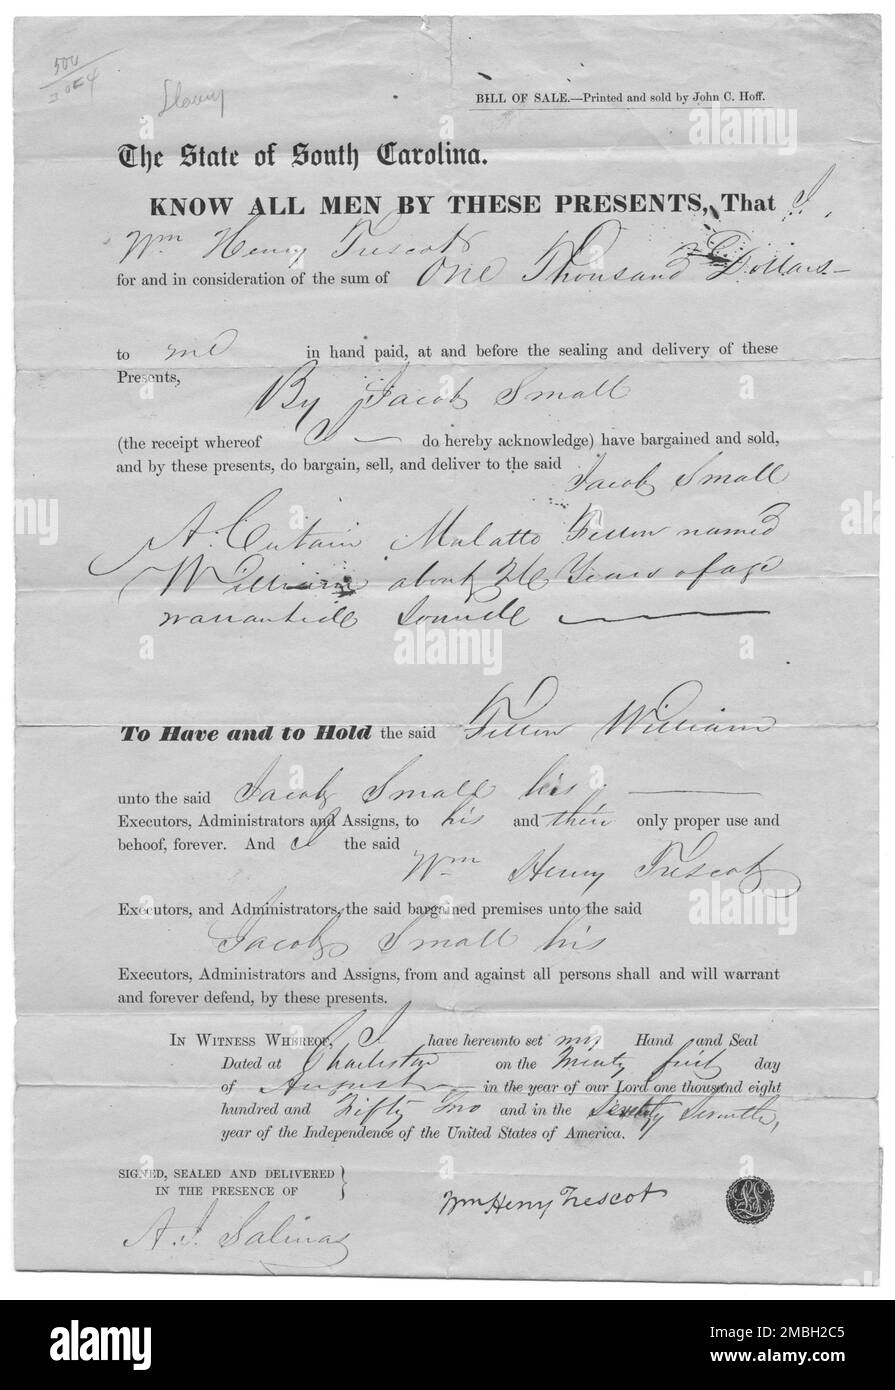 506
Slavery
BILL OF SALE.—Printed and sold by John C. Hoff.
The State of South Carolina.
KNOW ALL MEN BY THESE PRESENTS, That I,
Wm Henry Trescot
for and in consideration of the sum of One Thousand Dollars
to me in hand paid, at and before the sealing and delivery of these
Presents,
By Jacob Small
(the receipt whereof I do hereby acknowledge) have bargained and sold,
and by these presents, do bargain, sell, and deliver to the said
Jacob Small
A. Certain Malatto Fellow named
William about Years of age
Sounde
To Have and to Hold the said Fellow William
unto the said Jacob Small his
Executors, Administrators and Assigns, to his and their only proper use and
behoof, forever. And I the said
Wm Henry Trescot
Executors, and Administrators, the said bargained premises unto the said
Jacob Small his
Executors, Administrators and Assigns, from and against all persons shall and will warrant
and forever defend, by these presents.
IN WITNESS WHEREOF, I have hereunto set my Hand and Seal
Dated at Charleston on the first day
of August in the year of our Lord one thousand eight
hundred and Fifty Two and in the Seventy Seventh,
year of the Independence of the United States of America.
SIGNED, SEALED AND DELIVERED
IN THE PRESENCE OF
Wm Henry Trescot
LS
A. J. Salinas
alamy
Image ID: 2MBH2C5
www.alamy.com